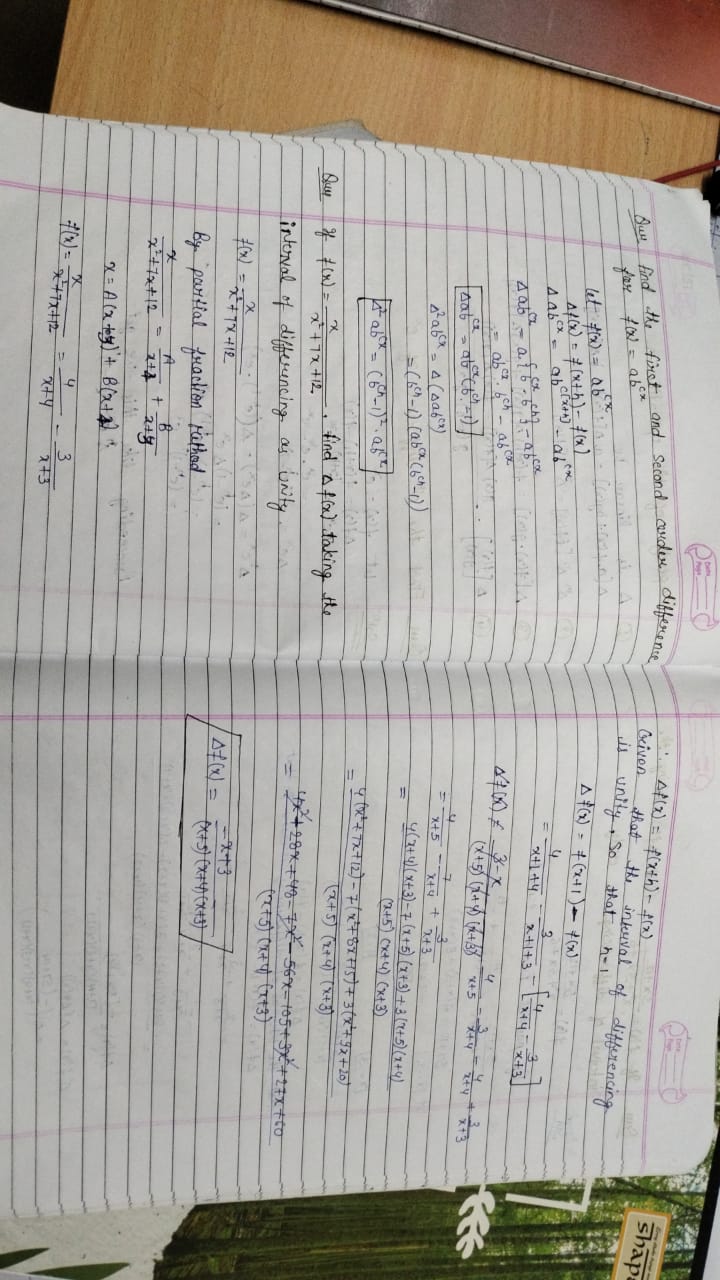 Date
Page
Que find the first and second order difference
for f(x) = ab^cx
let f(x) = ab^cx
Δf(x) = f(x+h) - f(x)
Δab^cx = ab^c(x+h) - ab^cx
Δab^cx = a{b^cx · b^ch} - ab^cx
= ab^cx · b^ch - ab^cx
Δab^cx = ab^cx (b^ch - 1)
Δ²ab^cx = Δ(Δab^cx)
= (b^ch - 1)(ab^cx (b^ch - 1))
Δ²ab^cx = (b^ch - 1)² · ab^cx
Que If f(x) = x/(x²+7x+12). find Δf(x) taking the
interval of differencing as unity.
f(x) = x/(x²+7x+12)
By partial fraction method
x/(x²+7x+12) = A/(x+4) + B/(x+3)
x = A(x+3) + B(x+4)
f(x) = x/(x²+7x+12) = 4/(x+4) - 3/(x+3)
Date
Page
∴ Δf(x) = f(x+h) - f(x)
Given that the interval of differencing
is unity, so that h=1
Δf(x) = f(x+1) - f(x)
= 4/(x+1+4) - 3/(x+1+3) - [4/(x+4) - 3/(x+3)]
Δf(x) = 3-x/(x+5)(x+4)(x+3) 4/(x+5) - 3/(x+4) - 4/(x+4) + 3/(x+3)
= 4/(x+5) - 7/(x+4) + 3/(x+3)
= (4(x+4)(x+3) - 7(x+5)(x+3) + 3(x+5)(x+4))/((x+5)(x+4)(x+3))
= (4(x²+7x+12) - 7(x²+8x+15) + 3(x²+9x+20))/((x+5)(x+4)(x+3))
= (4x²+28x+48-7x²-56x-105+3x²+27x+60)/((x+5)(x+4)(x+3))
Δf(x) = (-x+3)/((x+5)(x+4)(x+3))